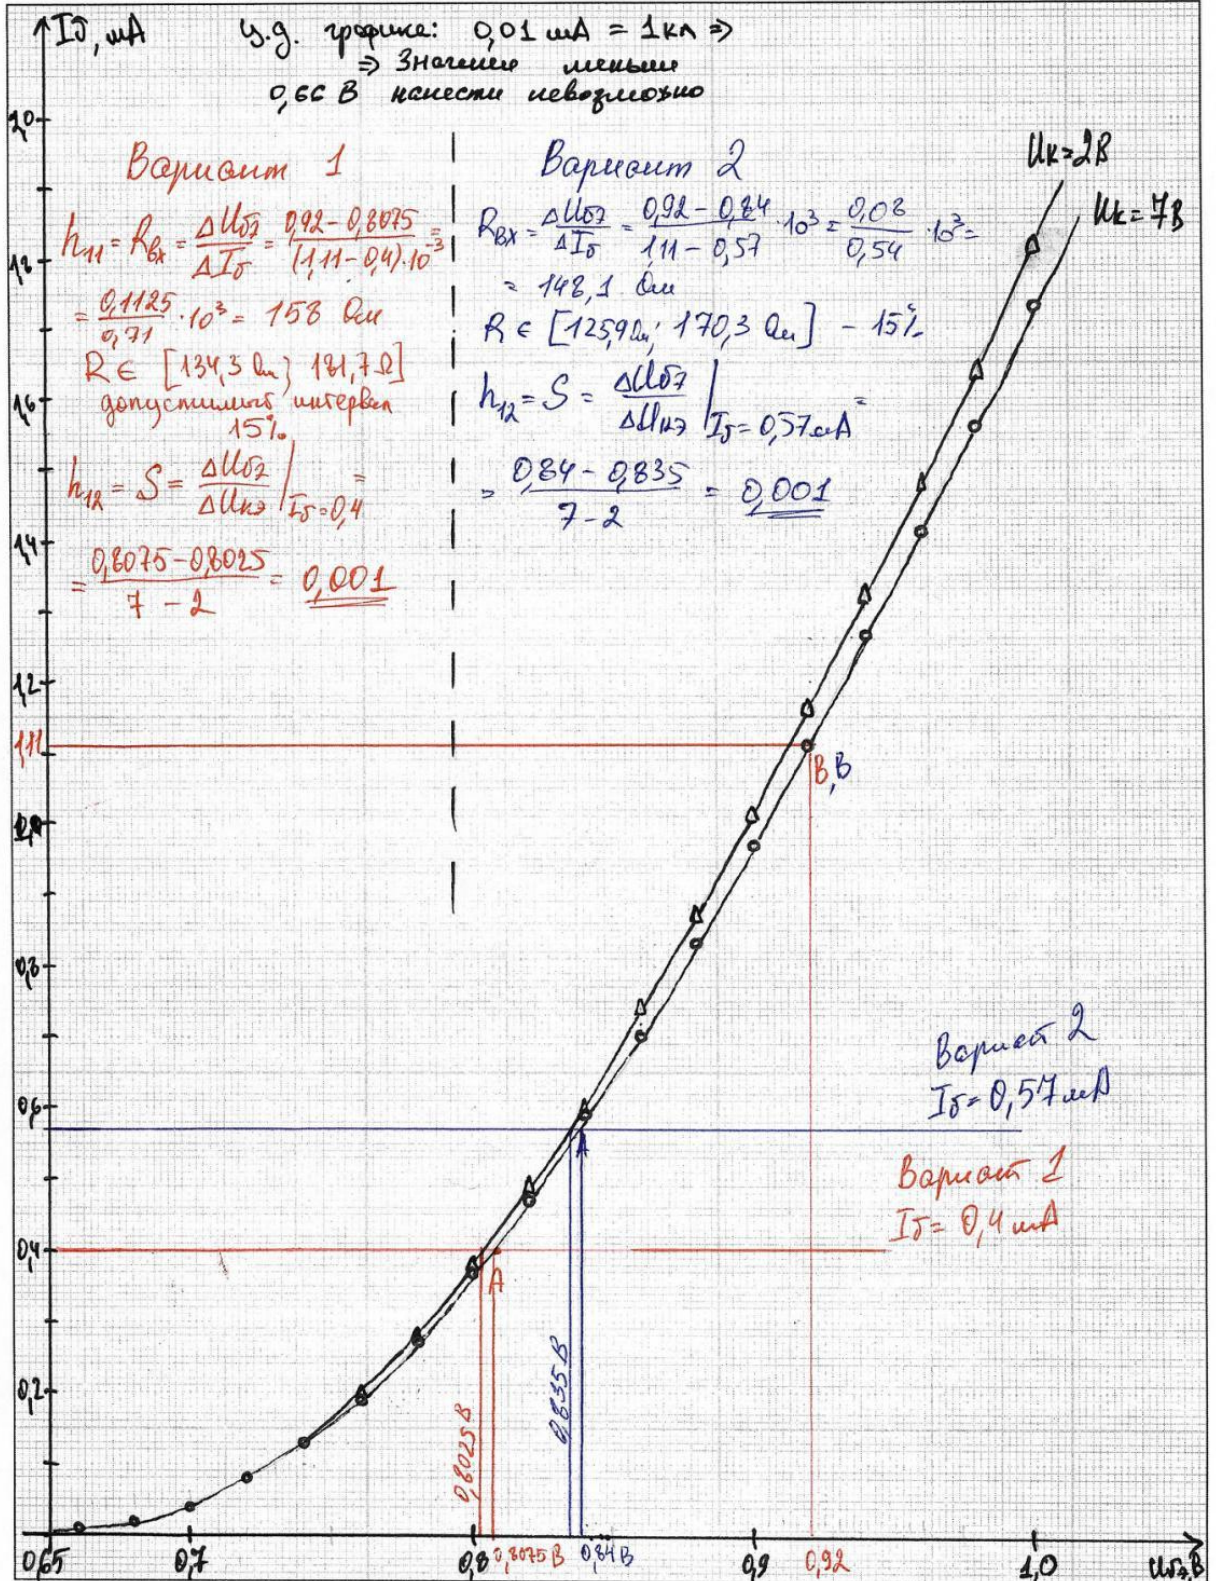 Iб, мА
Ц.д. графика: 0,01 мА = 1кл ⇒
⇒ Значения меньше
0,66 В нанести невозможно
Вариант 1
h₁₁ = Rвх = ΔUбэ/ΔIб = (0,92 − 0,8075)/((1,11 − 0,4)·10⁻³) =
= 0,1125/0,71 · 10³ = 158 Ом
R ∈ [134,3 Ом; 181,7 Ω]
допустимый интервал
15%
h₁₂ = S = ΔUбэ/ΔUкэ | Iб=0,4 =
= (0,8075 − 0,8025)/(7 − 2) = 0,001
Вариант 2
Rвх = ΔUбэ/ΔIб = (0,92 − 0,84)/(1,11 − 0,57) · 10³ = 0,08/0,54 · 10³ =
= 148,1 Ом
R ∈ [125,9 Ом; 170,3 Ом] − 15%
h₁₂ = S = ΔUбэ/ΔUкэ | Iб = 0,57 мА =
= (0,84 − 0,835)/(7 − 2) = 0,001
Uк=2В
Uк=7В
1,8
1,6
1,4
1,2
1,11
B, B
0,8
Вариант 2
Iб = 0,57 мА
0,6
A
Вариант 1
Iб = 0,4 мА
0,4
A
0,2
0,8025 В
0,835 В
0,65
0,7
0,8
0,8075 В
0,84 В
0,9
0,92
1,0
Uбэ, В